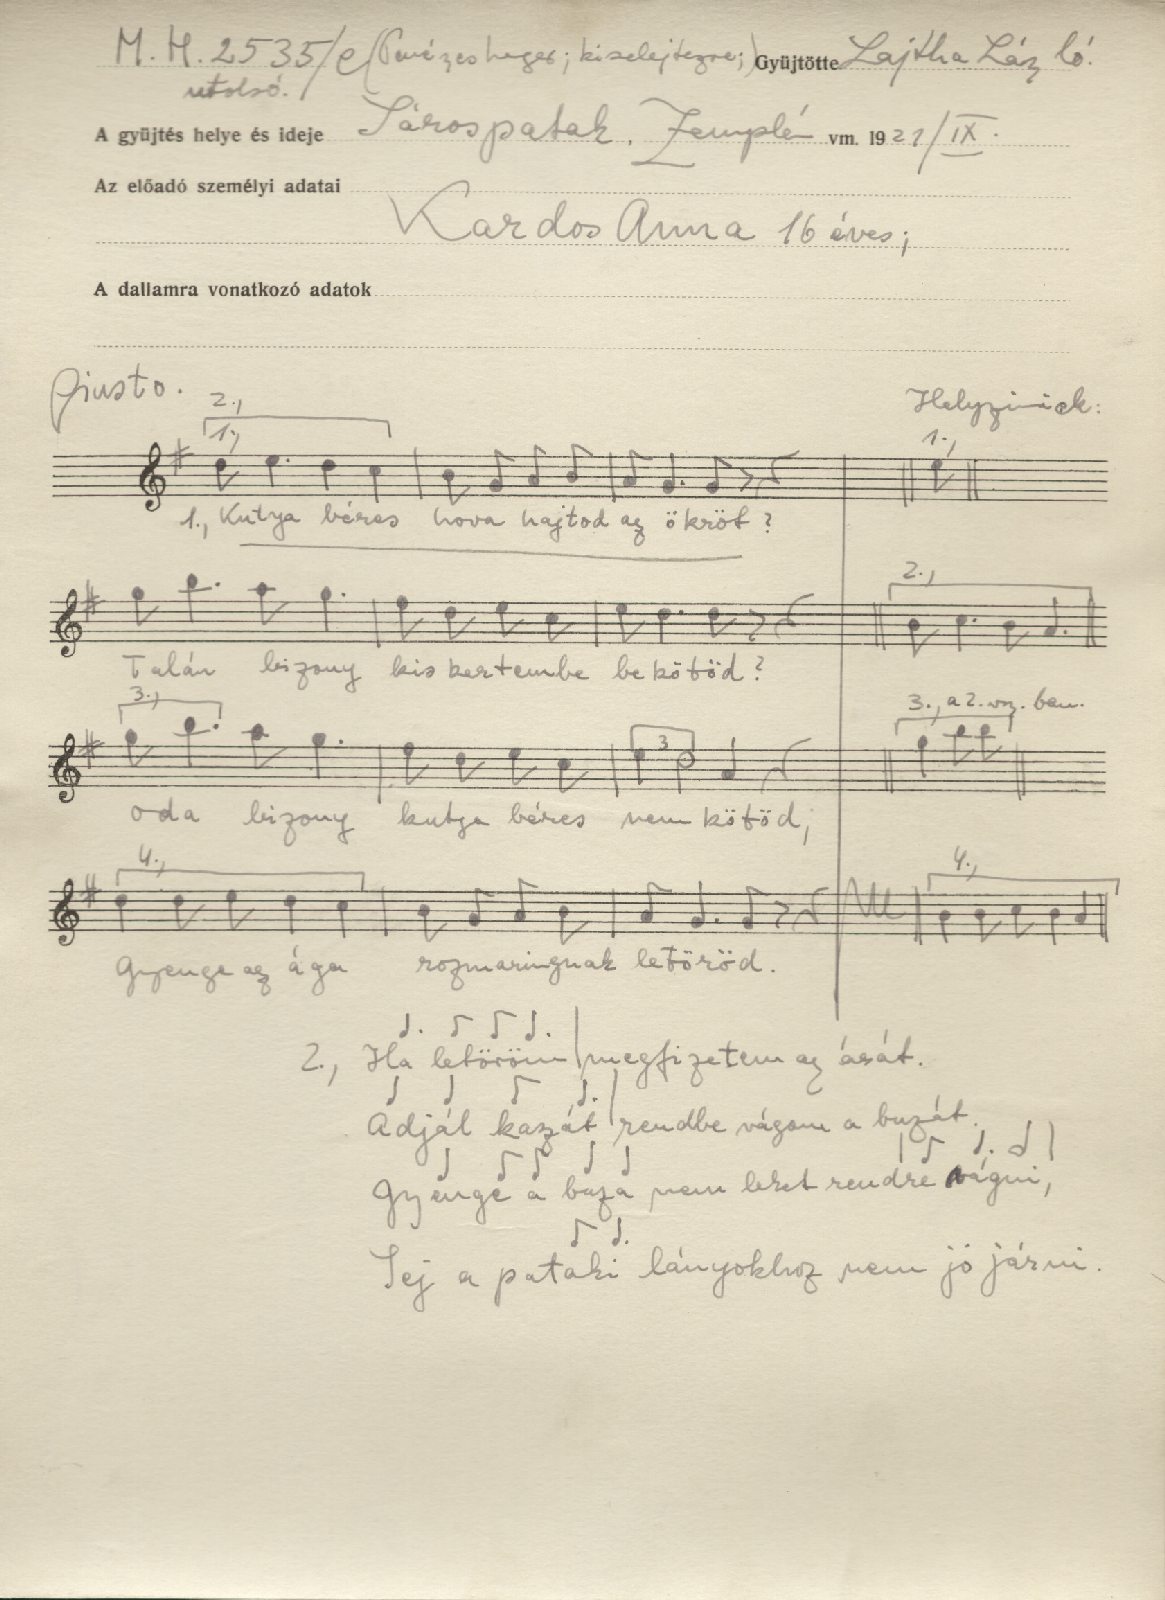 M. H. 2535/e (Penészes henger; kiselejtezve;) Gyüjtötte Lajtha László.
utolsó.
A gyüjtés helye és ideje Sárospatak. Zemplén vm. 1921/IX.
Az előadó személyi adatai
Kardos Anna 16 éves;
A dallamra vonatkozó adatok
Giusto.
Helyszíniek:
2., 1., 1.,
1., Kutya béres hova hajtod az ökröt?
2.,
Talán bizony kis kertembe be kötöd?
3., 3., a 2. vsz. ban.
3
oda bizony kutya béres nem kötöd;
4., 4.,
Gyenge az ága rozmaringnak letöröd.
2., Ha letöröm megfizetem az árát.
Adjál kaszát rendbe vágom a buzát.
Gyenge a buza nem lehet rendre vágni,
Sej a pataki lányokhoz nem jó járni.